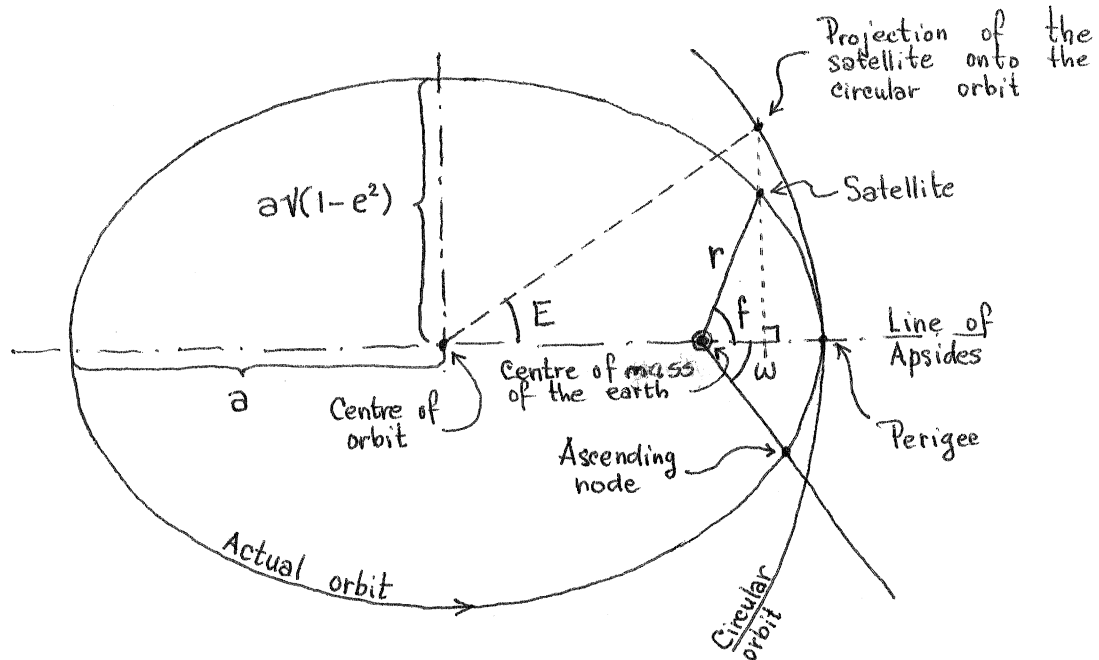 Projection of the
satellite onto the
circular orbit
Satellite
a√(1-e²)
r
E
f
Line of
Apsides
Centre of mass
of the earth
ω
a
Centre of
orbit
Perigee
Ascending
node
Actual orbit
Circular
orbit